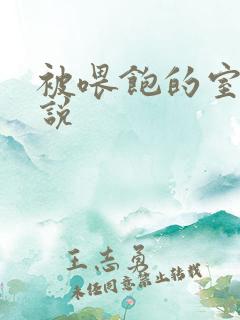 被喂飽的室
説
王志勇
未经同意禁止转载